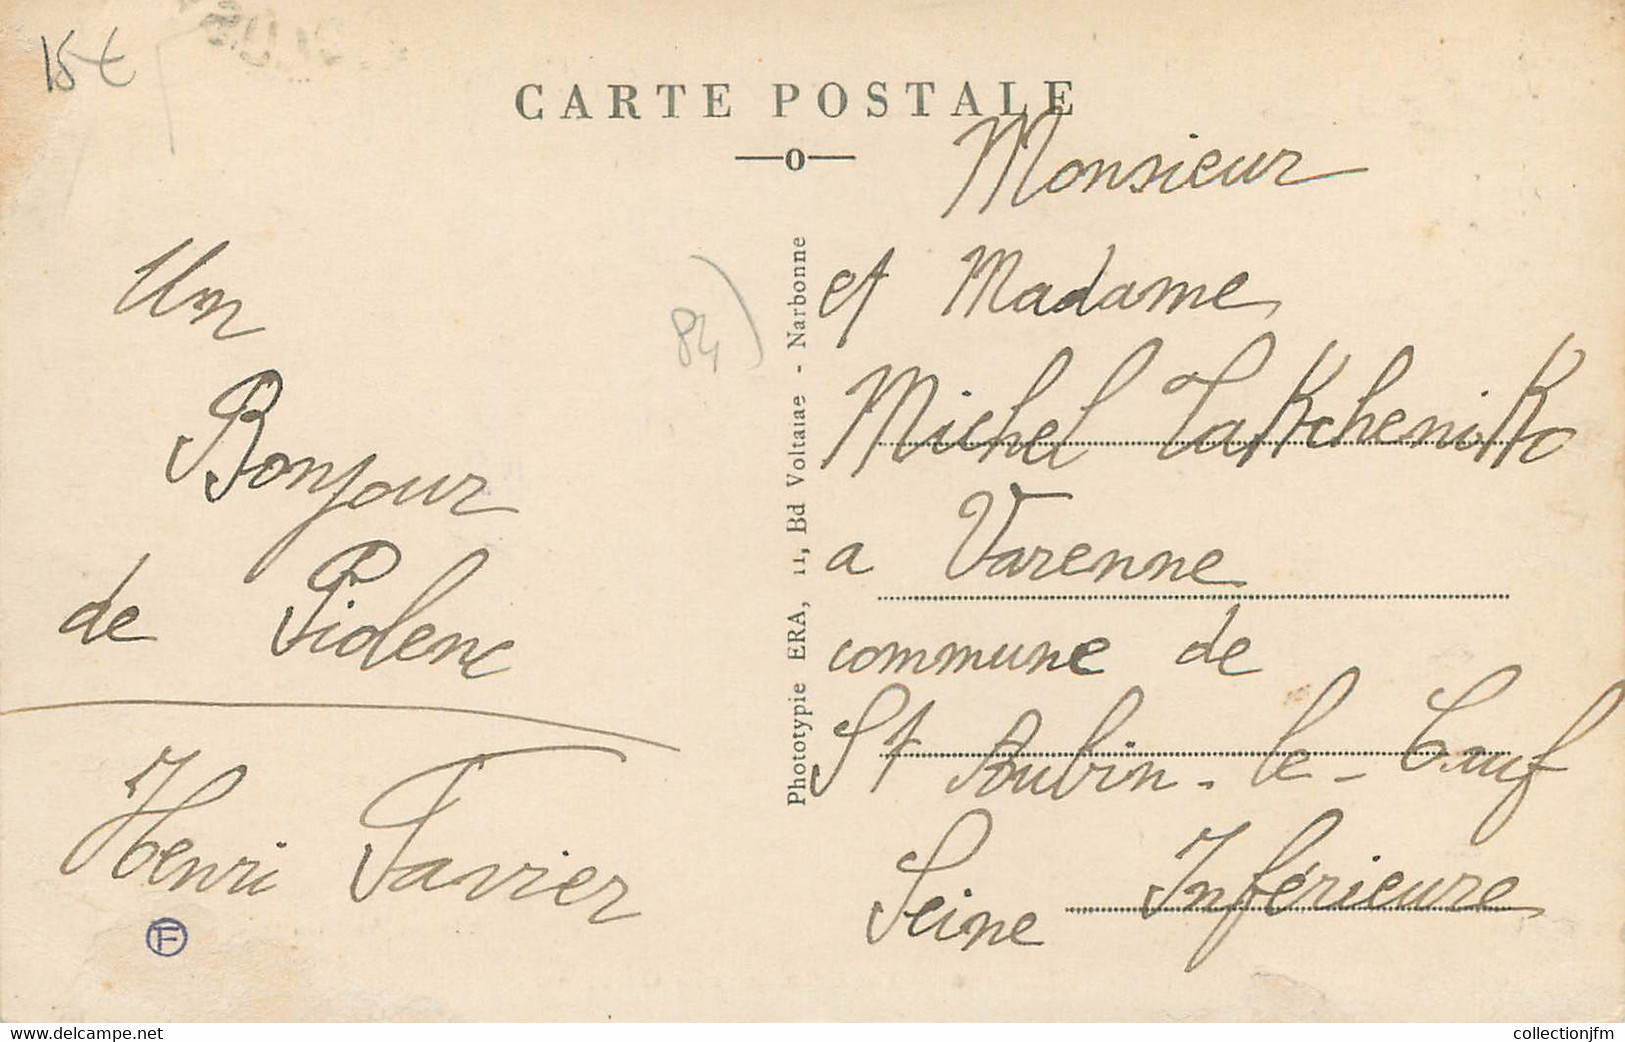 15€
CARTE POSTALE
Un
Bonjour
de Piolenc
Henri Favier
F
84)
Phototypie ERA, 11, Bd Voltaiae - Narbonne
Monsieur
et Madame
Michel Takchenikko
a Varenne
commune de
St Aubin-le-Cauf
Seine Inférieure
www.delcampe.net
collectionjfm